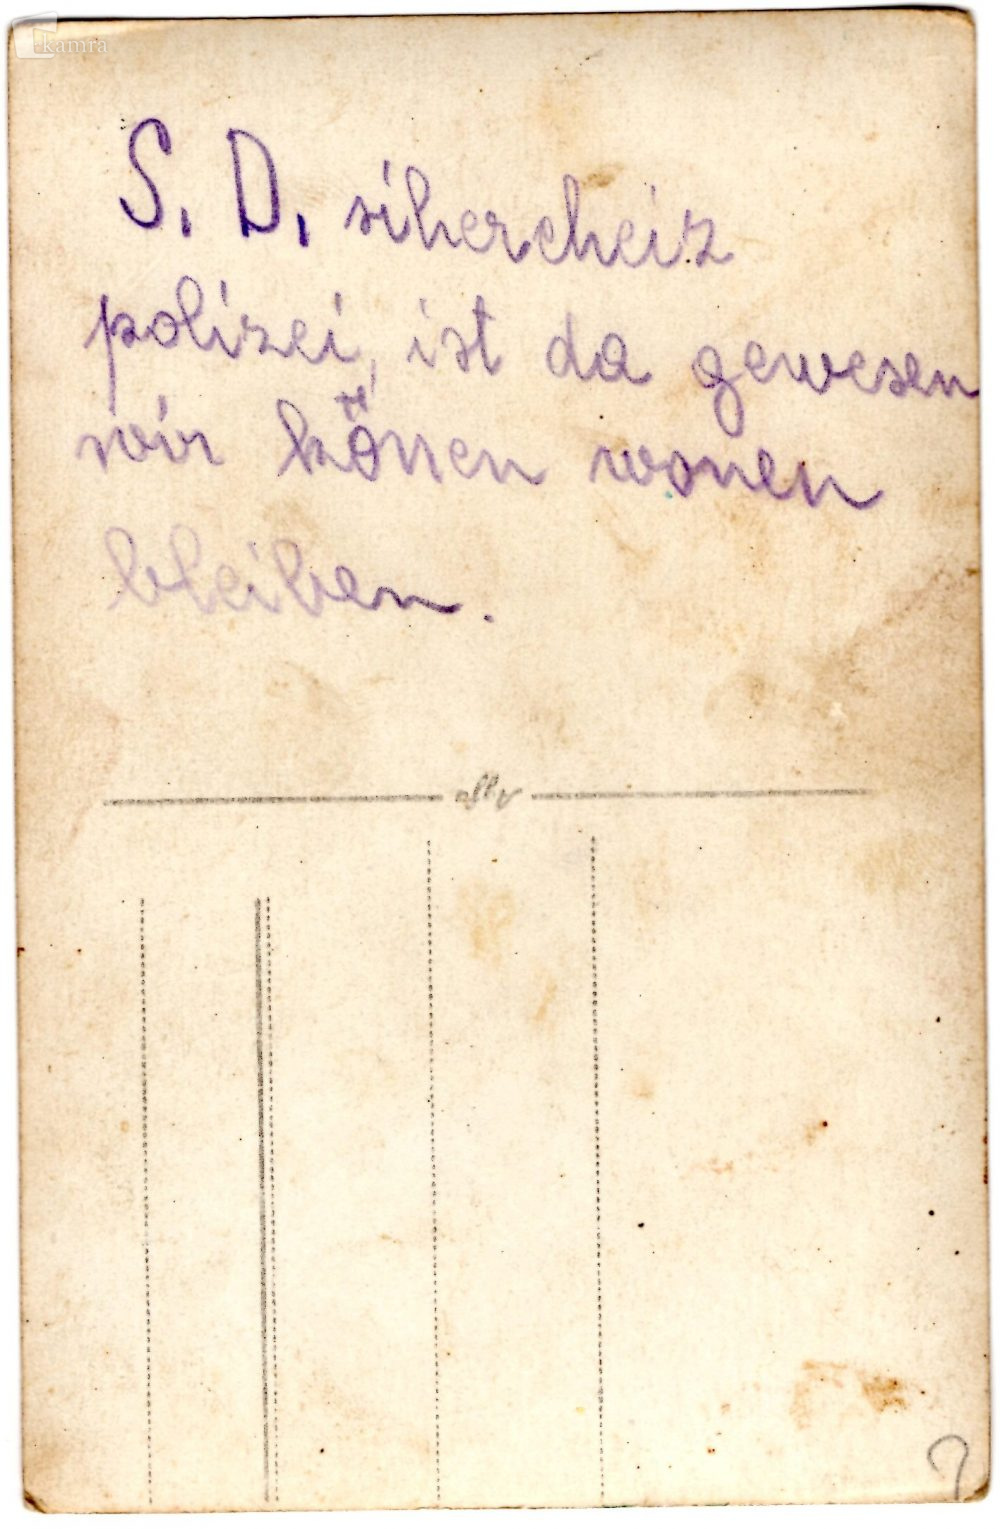 kamra
S. D. sihercheiz
polizei, ist da gewesen
wir können wonen
bleiben.
?